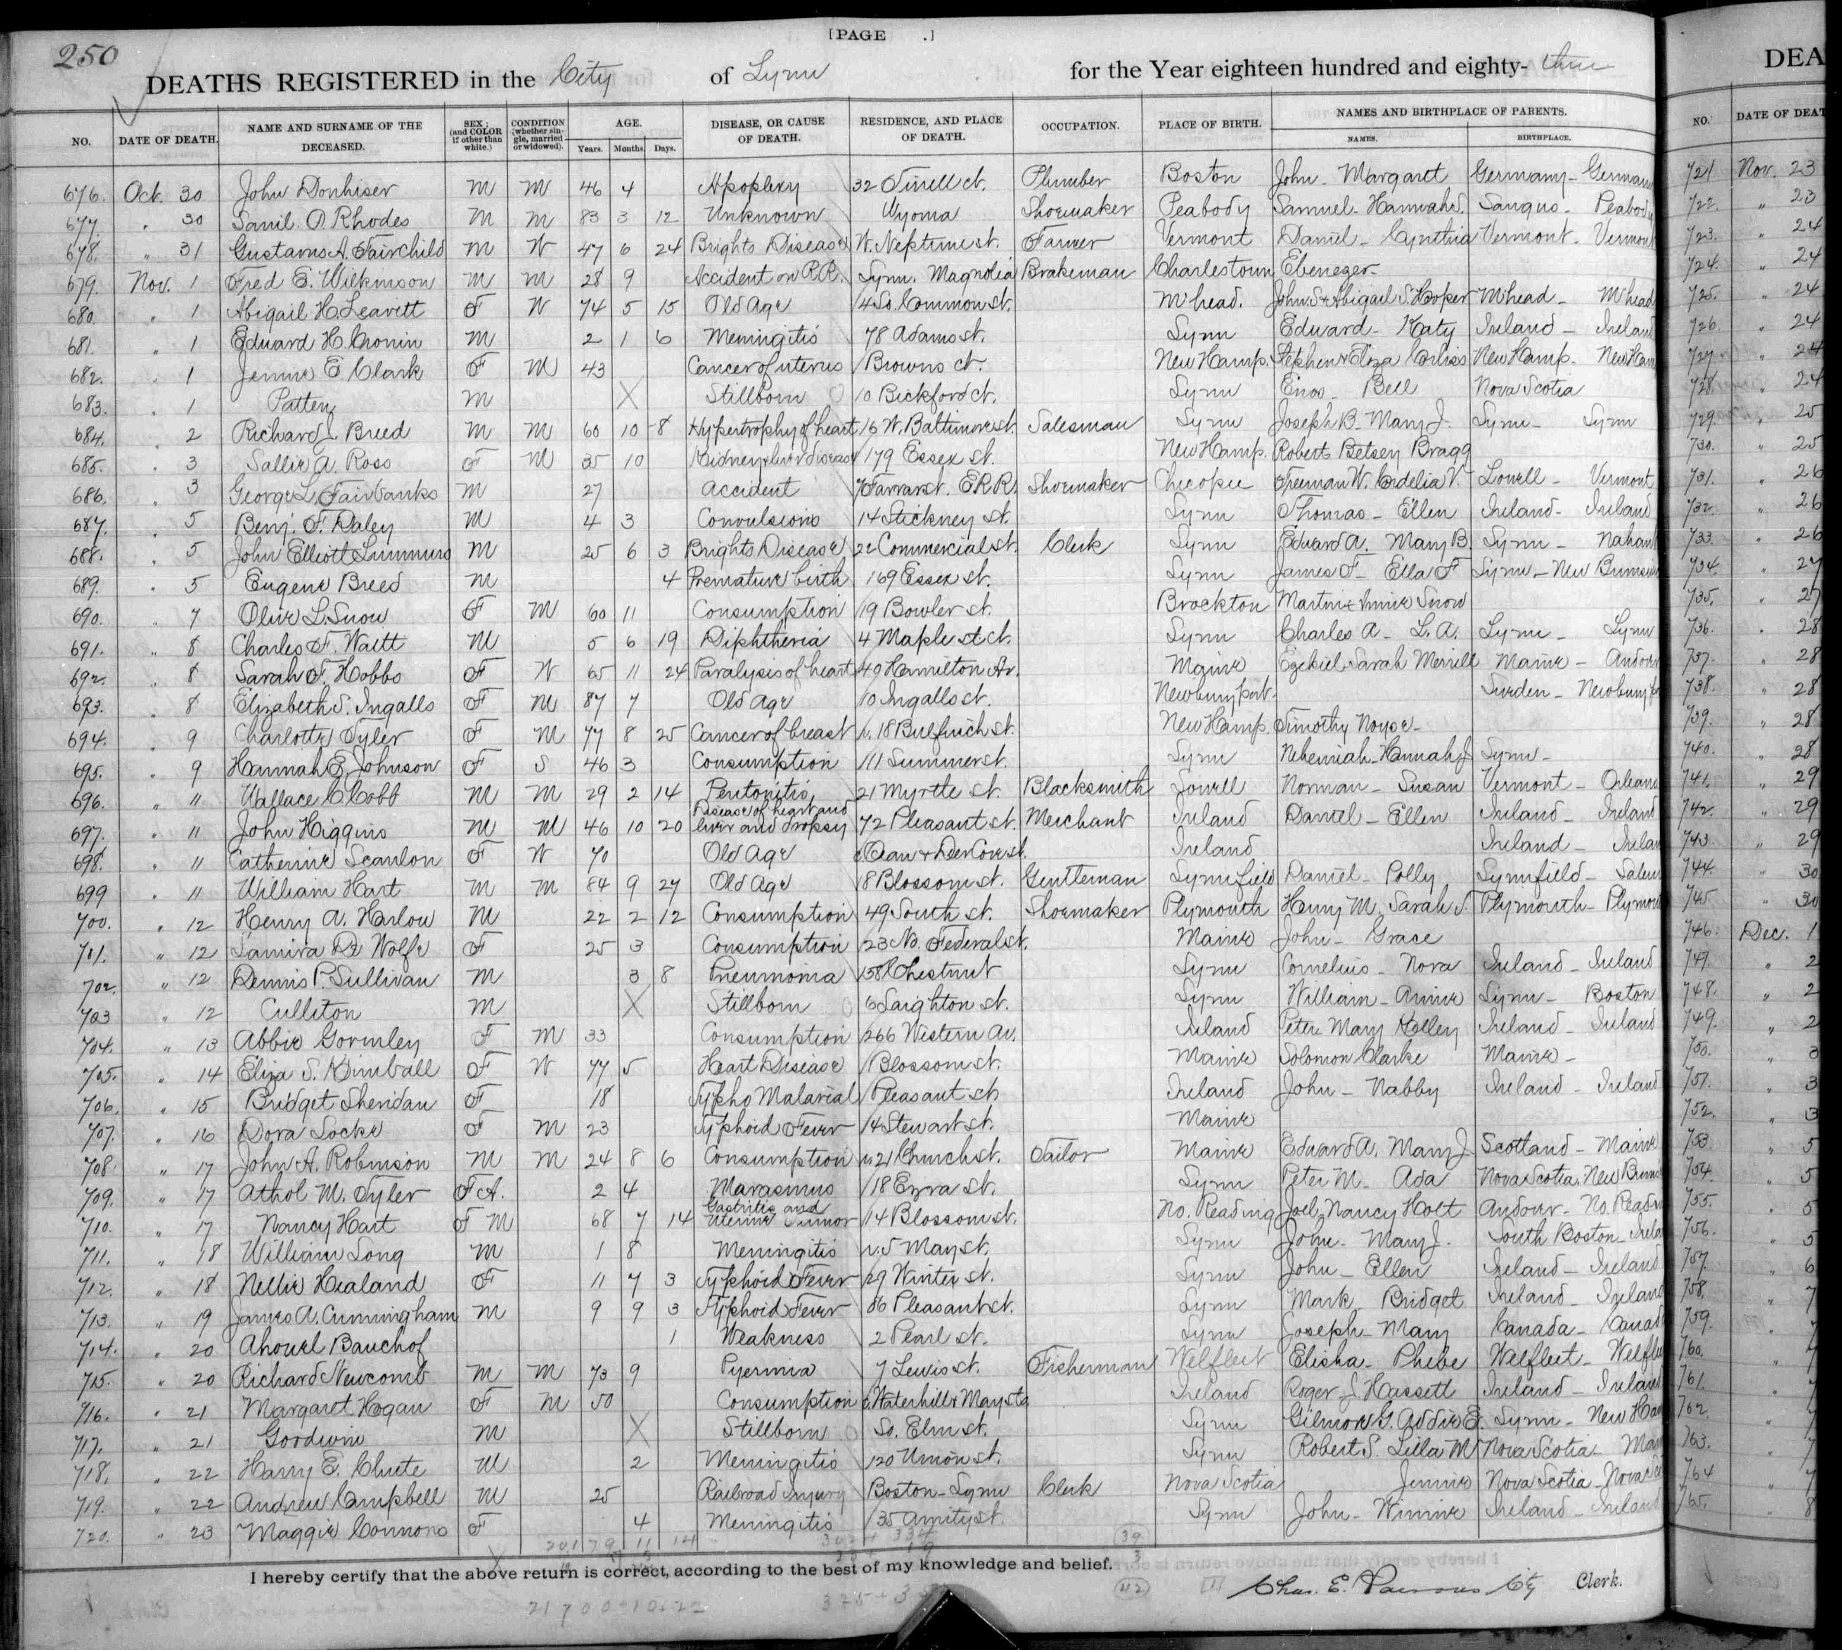 250
[PAGE .]
DEATHS REGISTERED in the City of Lynn for the Year eighteen hundred and eighty- three
NO. DATE OF DEATH. NAME AND SURNAME OF THE DECEASED. SEX; (and COLOR if other than white.) CONDITION (whether single, married or widowed). AGE. Years. Months. Days. DISEASE, OR CAUSE OF DEATH. RESIDENCE, AND PLACE OF DEATH. OCCUPATION. PLACE OF BIRTH. NAMES AND BIRTHPLACE OF PARENTS. NAMES. BIRTHPLACE.
676. Oct. 30 John Donhiser M M 46 4 Apoplexy 32 Tirrell ct. Plumber Boston John - Margaret Germany - German
677. " 30 Saml. O. Rhodes M M 83 3 12 Unknown Wyoma Shoemaker Peabody Samuel - Hannah S. Saugus - Peabody
678. " 31 Gustavus A. Fairchild M W 47 6 24 Brights Disease W. Neptune st. Farmer Vermont Daniel - Cynthia Vermont - Vermont
679. Nov. 1 Fred E. Wilkinson M M 28 9 Accident on R.R. Lynn. Magnolia Brakeman Charlestown Ebenezer -
680. " 1 Abigail H. Leavitt F W 74 5 15 Old Age 4 So. Common st. M'head. John S & Abigail S. Hooper M'head - M'head
681. " 1 Edward H. Cronin M 2 1 6 Meningitis 78 Adams st. Lynn Edward - Katy Ireland - Ireland
682. " 1 Jennie E Clark F M 43 Cancer of uterus Browns ct. New Hamp. Stephen & Eliza Corliss New Hamp. New Ham
683. " 1 Patten M X Stillborn 10 Bickford ct. Lynn Enos - Bell Nova Scotia
684. " 2 Richard J. Breed M M 60 10 8 Hypertrophy of heart 16 W. Baltimore st. Salesman Lynn Joseph B - Mary J. Lynn - Lynn
685. " 3 Sallie A. Ross F M 35 10 Kidney & liver disease 179 Essex st. New Hamp. Robert Betsey Bragg
686. " 3 George L. Fairbanks M 27 Accident 7 Farrar st. E.R.R. Shoemaker Chicopee Freeman W. Cordelia V. Lowell - Vermont
687. " 5 Benj. F. Daley M 4 3 Convulsions 14 Stickney st. Lynn Thomas - Ellen Ireland - Ireland
688. " 5 John Elliott Summers M 25 6 3 Brights Disease 22 Commercial st. Clerk Lynn Edward A. Mary B. Lynn - Nahant
689. " 5 Eugene Breed M 4 Premature birth 169 Essex st. Lynn James F - Ella F Lynn - New Brunsw
690. " 7 Olive L. Snow F M 60 11 Consumption 19 Bowler st. Brockton Martin & Annie Snow
691. " 8 Charles F. Waitt M 5 6 19 Diphtheria 4 Maple st ct. Lynn Charles A - L. A. Lynn - Lynn
692. " 8 Sarah F. Hobbs F W 65 11 24 Paralysis of heart 49 Hamilton Av. Maine Ezekiel & Sarah Merrill Maine - Andover
693. " 8 Elizabeth S. Ingalls F M 87 7 Old Age 10 Ingalls st. Newburyport - Sweden - Newbury
694. " 9 Charlotte Tyler F M 77 8 25 Cancer of breast r. 18 Bulfinch st. New Hamp. Timothy Noyse -
695. " 9 Hannah E. Johnson F S 46 3 Consumption 111 Summer st. Lynn Nehemiah - Hannah J Lynn -
696. " 11 Wallace C. Cobb M M 29 2 14 Peritonitis 21 Myrtle st. Blacksmith Lowell Norman - Susan Vermont - Orleans
697. " 11 John Higgins M M 46 10 20 Disease of heart and liver and dropsy 72 Pleasant st. Merchant Ireland Daniel - Ellen Ireland - Ireland
698. " 11 Catherine Scanlon F W 70 Old Age c Ocean & Deer Cove st. Ireland Ireland - Irelan
699 " 11 William Hart M M 84 9 27 Old Age 18 Blossom st. Gentleman Lynnfield Daniel - Polly Lynnfield - Salem
700. " 12 Henry A. Harlow M 22 2 12 Consumption 49 South st. Shoemaker Plymouth Henry M. Sarah S. Plymouth - Plymou
701. " 12 Samira De Wolfe F 25 3 Consumption 23 No. Federal st. Maine John - Grace
702. " 12 Dennis P. Sullivan M 3 8 Pneumonia 158 Chestnut Lynn Cornelius - Nora Ireland - Ireland
703 " 12 Culliton M X Stillborn 6 Laighton st. Lynn William - Annie Lynn - Boston
704. " 13 Abbie Gormley F M 33 Consumption 266 Western av. Ireland Peter Mary Kelley Ireland - Ireland
705. " 14 Eliza S. Kimball F W 77 5 Heart Disease Blossom st. Maine Solomon Clarke Maine -
706. " 15 Bridget Sheridan F 18 Typho Malarial Pleasant st. Ireland John - Nabby Ireland - Ireland
707. " 16 Dora Locke F M 23 Typhoid Fever 14 Stewart st. Maine
708. " 17 John A. Robinson M M 24 8 6 Consumption r. 21 Church st. Sailor Maine Edward A. Mary J. Scotland - Maine
709. " 17 Athol M. Tyler F A. 2 4 Marasmus 118 Ezra st. Lynn Peter M. Ada Nova Scotia. New Bruns
710. " 17 Nancy Hart F M 68 7 14 Gastritis and Uterine Tumor 14 Blossom st. No. Reading Joel, Nancy Holt Andover - No. Readin
711. " 18 William Long M 1 8 Meningitis r. 5 May st. Lynn John - Mary J. South Boston - Irelan
712. " 18 Nellie Healand F 11 7 3 Typhoid Fever 29 Winter st. Lynn John - Ellen Ireland - Ireland
713. " 19 James A. Cunningham M 9 9 3 Typhoid Fever 86 Pleasant st. Lynn Mark - Bridget Ireland - Ireland
714. " 20 Ahouel Bauchof 1 Weakness 2 Pearl st. Lynn Joseph - Mary Canada - Canad
715. " 20 Richard Newcomb M M 73 9 Pyemia 7 Lewis st. Fisherman Welfleet Elisha - Phebe Welfleet - Welfle
716. " 21 Margaret Hogan F M 50 Consumption c. Waterhill & May sts. Ireland Roger J. Hassett Ireland - Ireland
717. " 21 Goodwin M X Stillborn So. Elm st. Lynn Gilmore G. Addie E. Lynn - New Ha
718. " 22 Harry E. Chute M 2 Meningitis 120 Union st. Lynn Robert S. Lilla M Nova Scotia - Ma
719. " 22 Andrew Campbell M 25 Railroad injury Boston - Lynn Clerk Nova Scotia Jennie Nova Scotia - Nova Sc
720. " 23 Maggie Connors F 4 Meningitis 135 Amity st. Lynn John - Winnie Ireland - Ireland
39
3
42
I hereby certify that the above return is correct, according to the best of my knowledge and belief.
Chas. E. Parsons City Clerk.
DEA
NO. DATE OF DEAT
721 Nov. 23
722. " 23
723. " 24
724. " 24
725. " 24
726. " 24
727. " 24
728. " 24
729. " 25
730. " 25
731. " 26
732. " 26
733. " 26
734. " 27
735. " 27
736. " 28
737. " 28
738. " 28
739. " 28
740. " 28
741. " 29
742. " 29
743. " 29
744. " 30
745. " 30
746. Dec. 1
747. " 2
748. " 2
749. " 2
750. " 3
751. " 3
752. " 3
753. " 5
754. " 5
755. " 5
756. " 5
757. " 6
758. " 7
759. " 7
760. " 7
761. " 7
762. " 7
763. " 7
764 " 7
765. " 8